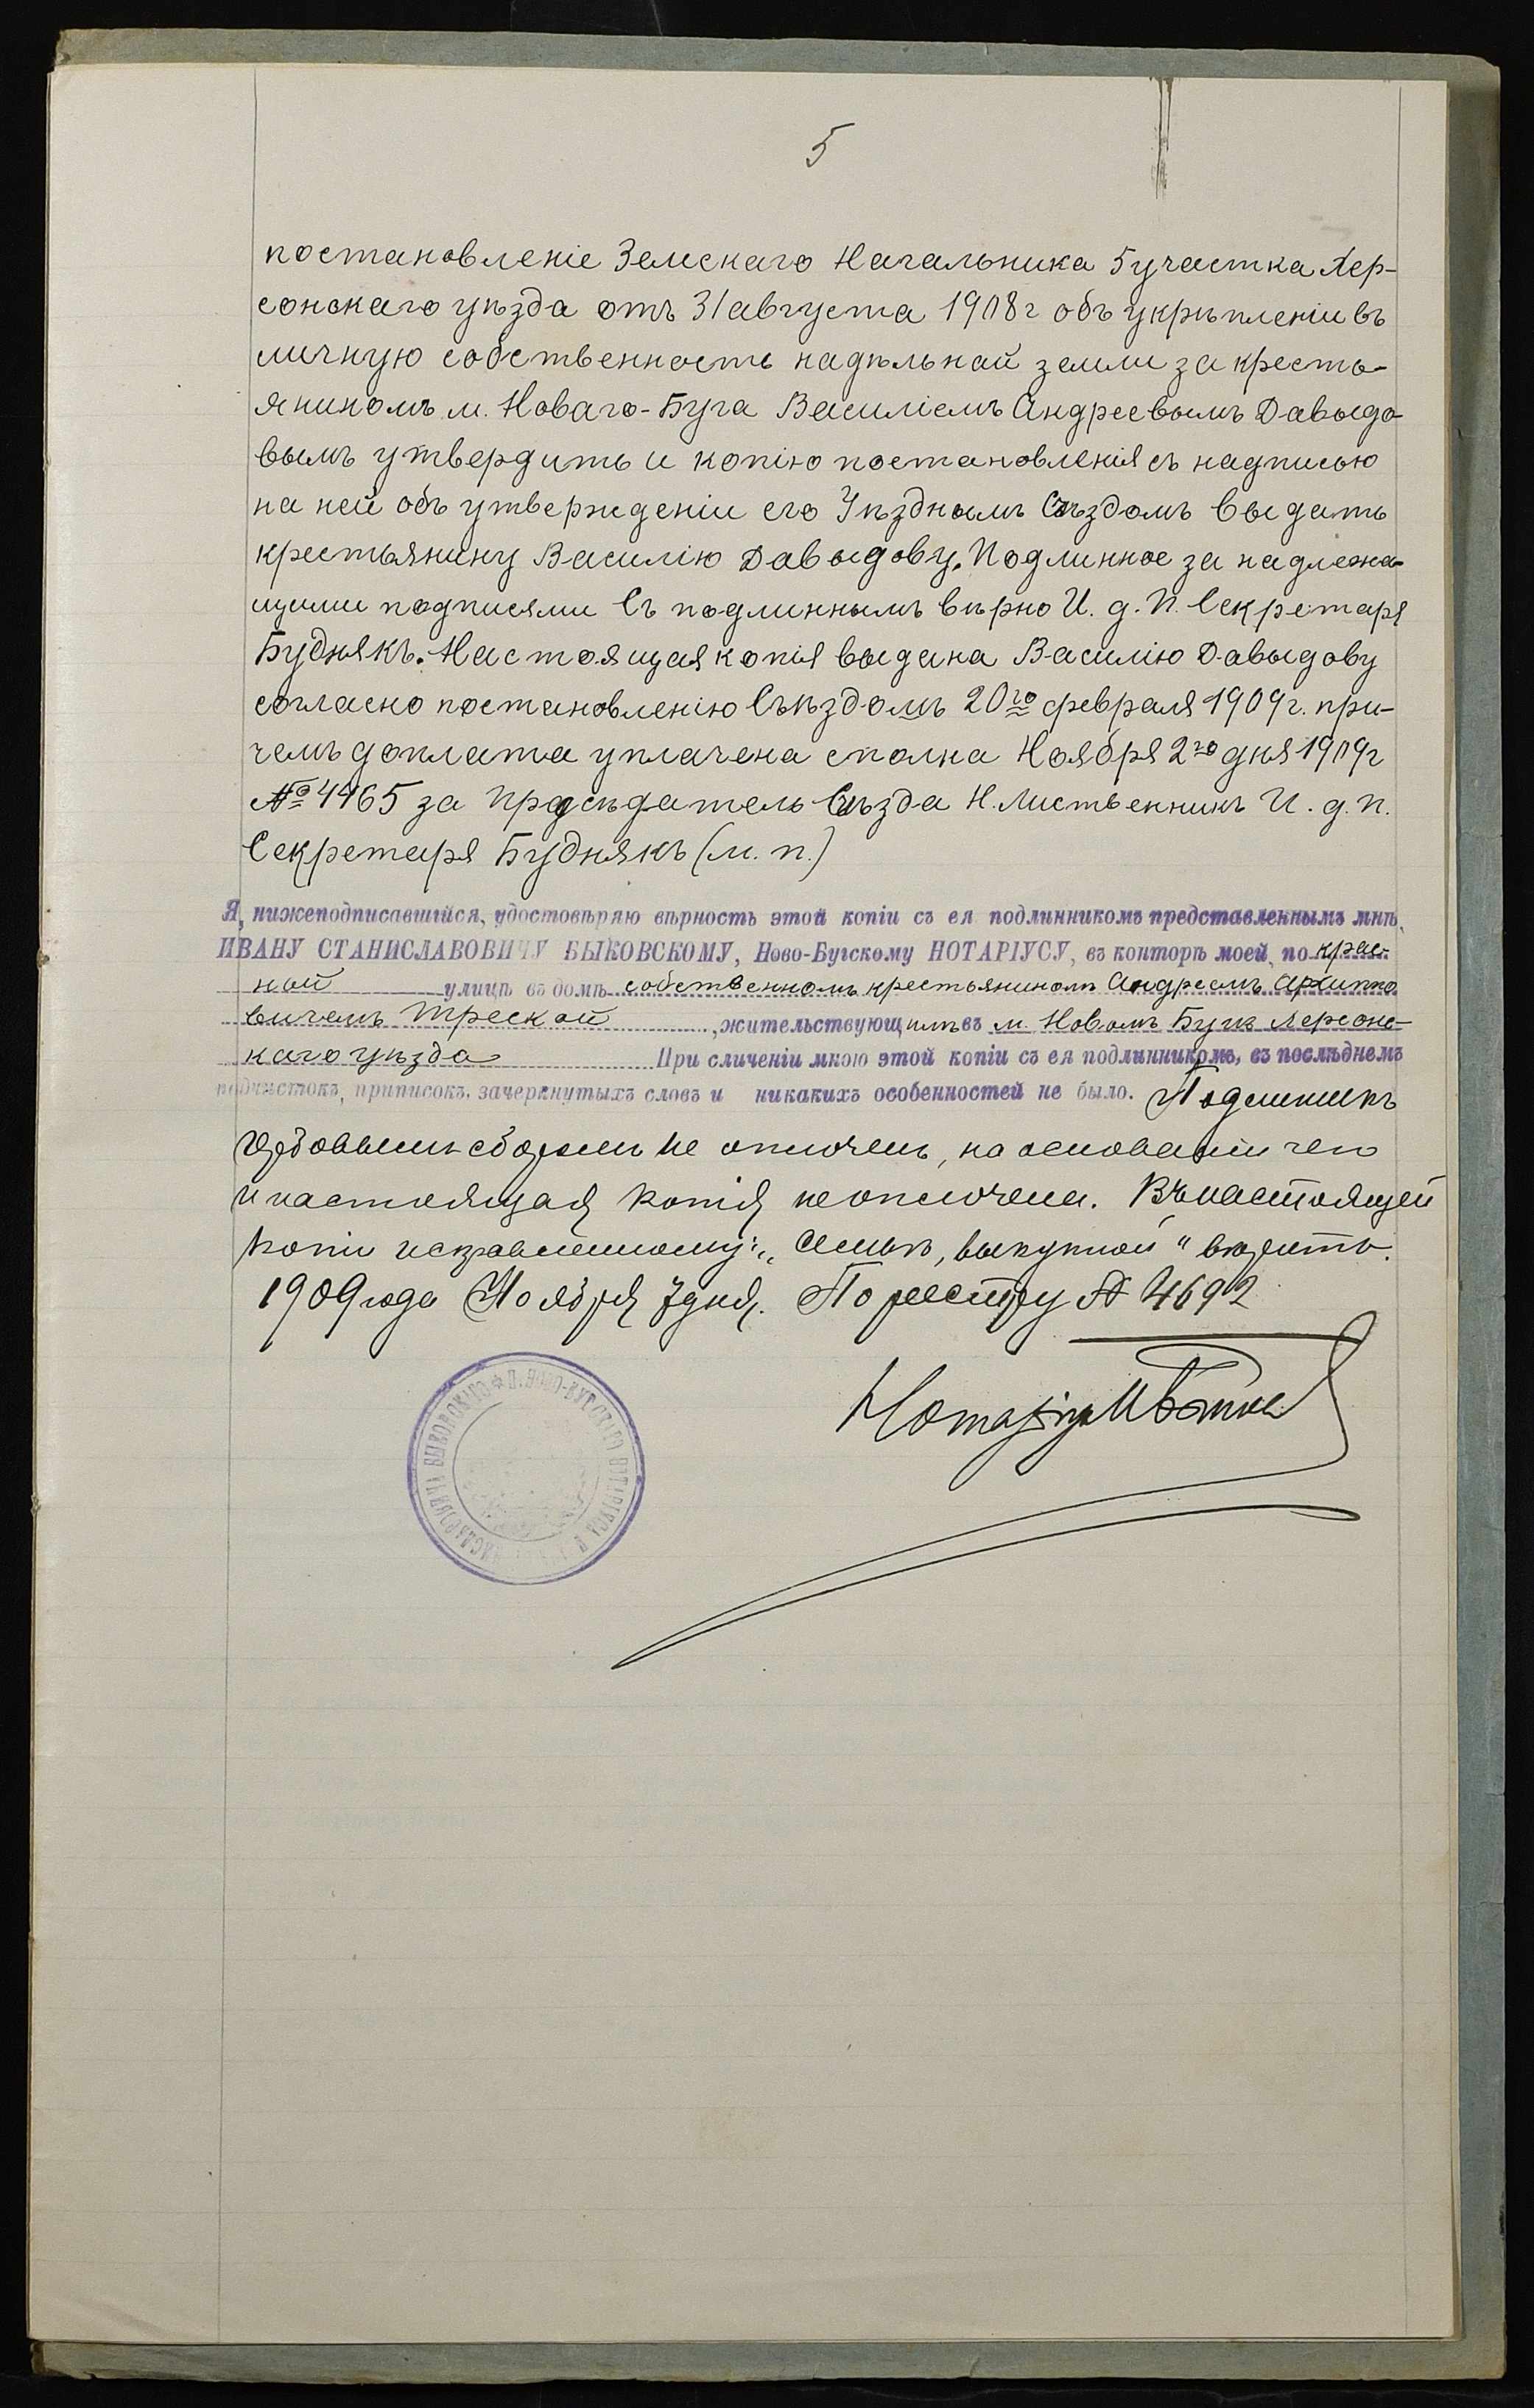 5
постановленіе Земскаго Начальника 5 участка Хер-
сонскаго уѣзда отъ 31 августа 1908 г объ укрѣпленіи въ
личную собственность надѣльной земли за кресть-
яниномъ м. Новаго-Буга Василіемъ Андреевымъ Давыдо-
вымъ утвердить и копію постановленія съ надписью
на ней объ утвержденіи его Уѣзднымъ Съѣздомъ выдать
крестьянину Василію Давыдову. Подлинное за надлежа-
щими подписями Съ подлиннымъ вѣрно И. д. П. Секретаря
Буднякъ. Настоящая копія выдана Василію Давыдову
согласно постановленію Съѣздомъ 20го февраля 1909 г. при-
чемъ доплата уплачена сполна Ноября 2го дня 1909 г
№ 4465 за Предсѣдатель Съѣзда Н. Листвененникъ И. д. П.
Секретаря Буднякъ (м. п.)
Я, нижеподписавшійся, удостовѣряю вѣрность этой копіи съ ея подлинникомъ представленнымъ мнѣ,
ИВАНУ СТАНИСЛАВОВИЧУ БЫКОВСКОМУ, Ново-Бугскому НОТАРІУСУ, въ конторѣ моей, по крас-
ной улицѣ въ домѣ собственномъ крестьяниномъ Андреемъ Архипо
вичемъ Треской, жительствующимъ въ м. Новомъ Бугѣ Херсонс-
каго уѣзда При сличеніи мною этой копіи съ ея подлинникомъ, въ послѣднемъ
подчистокъ, приписокъ, зачеркнутыхъ словъ и никакихъ особенностей не было. Подлинникъ
гербовымъ сборомъ не оплоченъ, на основаніи чего
и настоящая копія не оплочена. Въ настоящей
копіи исправленному: „ выкупной" вѣрить.
1909 года Ноября 7 дня. По реестру № 4692
Нотаріусъ